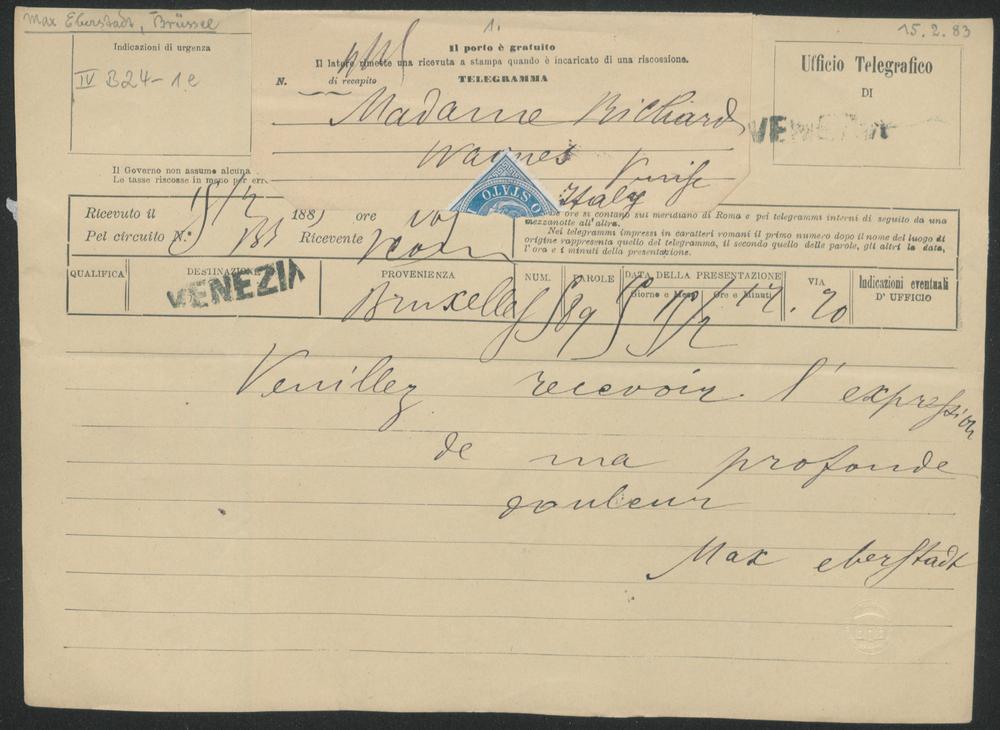 Max Eberstadt, Brüssel
1.
15.2.83
Indicazioni di urgenza
IV B24-1e
Il porto è gratuito
Il latore rimette una ricevuta a stampa quando è incaricato di una riscossione.
N. di recapito TELEGRAMMA
Madame Richard
Wagner
Venise
Italy
O STATO
Ufficio Telegrafico
DI
VENEZIA
Il Governo non assume alcuna
Le tasse riscosse in meno per err
Ricevuto il 15/2 188 ore
Pel circuito N.° Ricevente
le ore si contano sul meridiano di Roma e pei telegrammi interni di seguito da una
mezzanotte all'altra.
Nei telegrammi impressi in caratteri romani il primo numero dopo il nome del luogo di
origine rappresenta quello del telegramma, il secondo quello delle parole, gli altri la data,
l'ora e i minuti della presentazione.
QUALIFICA DESTINAZIONE PROVENIENZA NUM. PAROLE DATA DELLA PRESENTAZIONE VIA Indicazioni eventuali
Giorno e Mese Ore e Minuti D'UFFICIO
VENEZIA
Bruxelles 15/2 12.20
Veuillez recevoir l'expression
de ma profonde
douleur
Max eberstadt